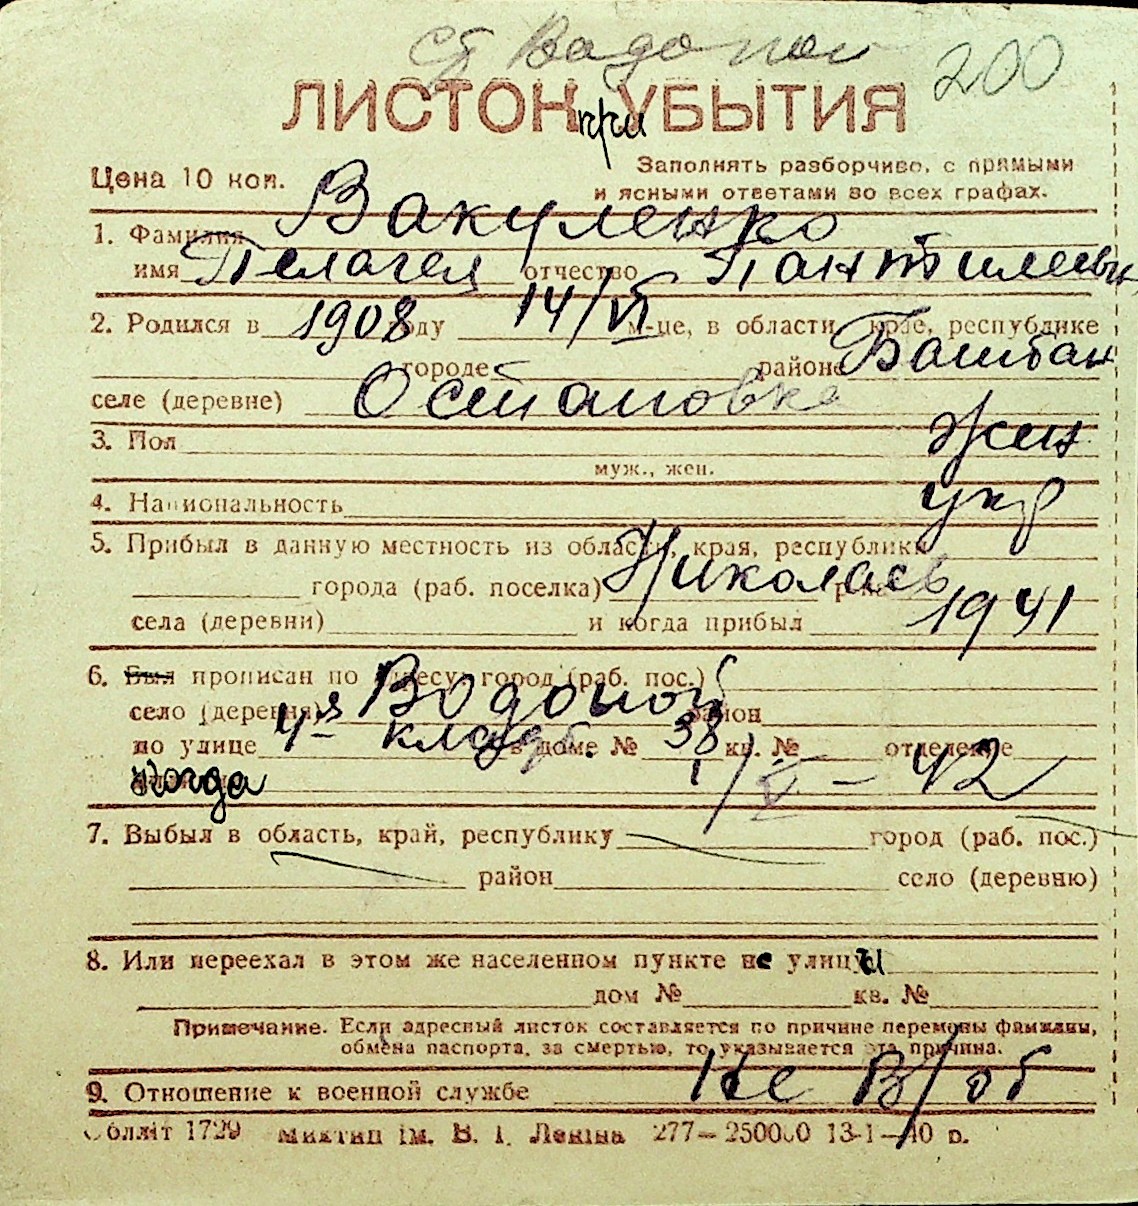 Ст Вадопой 200
ЛИСТОК при УБЫТИЯ
Цена 10 коп. Заполнять разборчиво, с прямыми
и ясными ответами во всех графах.
1. Фамилия Вакуленко
имя Пелагея отчество Пантилеевн
2. Родился в 1908 году 14/VI м-це, в области, крае, республике
городе районе Баштан
селе (деревне) Остановке
3. Пол жен
муж., жен.
4. Национальность укр
5. Прибыл в данную местность из области, края, республики
города (раб. поселка) Николаев
села (деревни) и когда прибыл 1941
6. Был прописан по адресу: город (раб. пос.)
село (деревня) Водопой район
по улице 4-я кладб. в доме № 38 кв. № отделение
когда 1/V - 42
7. Выбыл в область, край, республику город (раб. пос.)
район село (деревню)
8. Или переехал в этом же населенном пункте не улицы
дом № кв. №
Примечание. Если адресный листок составляется по причине перемены фамилии,
обмена паспорта, за смертью, то указывается эта причина.
9. Отношение к военной службе Не в/об
Обллiт 1729 Миктип iм. В. I. Ленiна 277—250000 13-1—40 р.